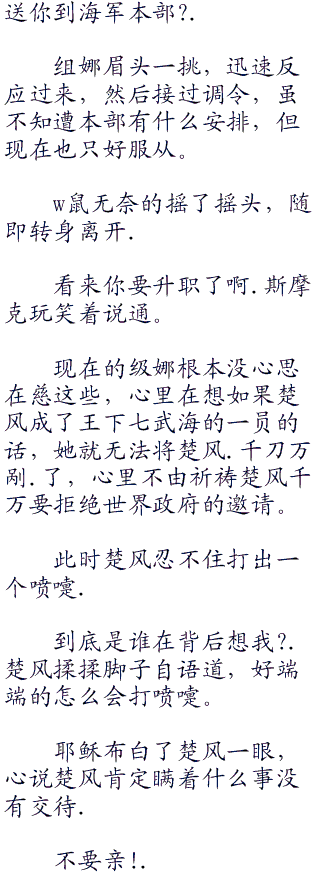 送你到海军本部?.
组娜眉头一挑，迅速反
应过来，然后接过调令，虽
不知遭本部有什么安排，但
现在也只好服从。
w鼠无奈的摇了摇头，随
即转身离开.
看来你要升职了啊.斯摩
克玩笑着说通。
现在的级娜根本没心思
在慈这些，心里在想如果楚
风成了王下七武海的一员的
话，她就无法将楚风.千刀万
剐.了，心里不由祈祷楚风千
万要拒绝世界政府的邀请。
此时楚风忍不住打出一
个喷嚏.
到底是谁在背后想我?.
楚风揉揉脚子自语道，好端
端的怎么会打喷嚏。
耶稣布白了楚风一眼，
心说楚风肯定瞒着什么事没
有交待.
不要亲!.